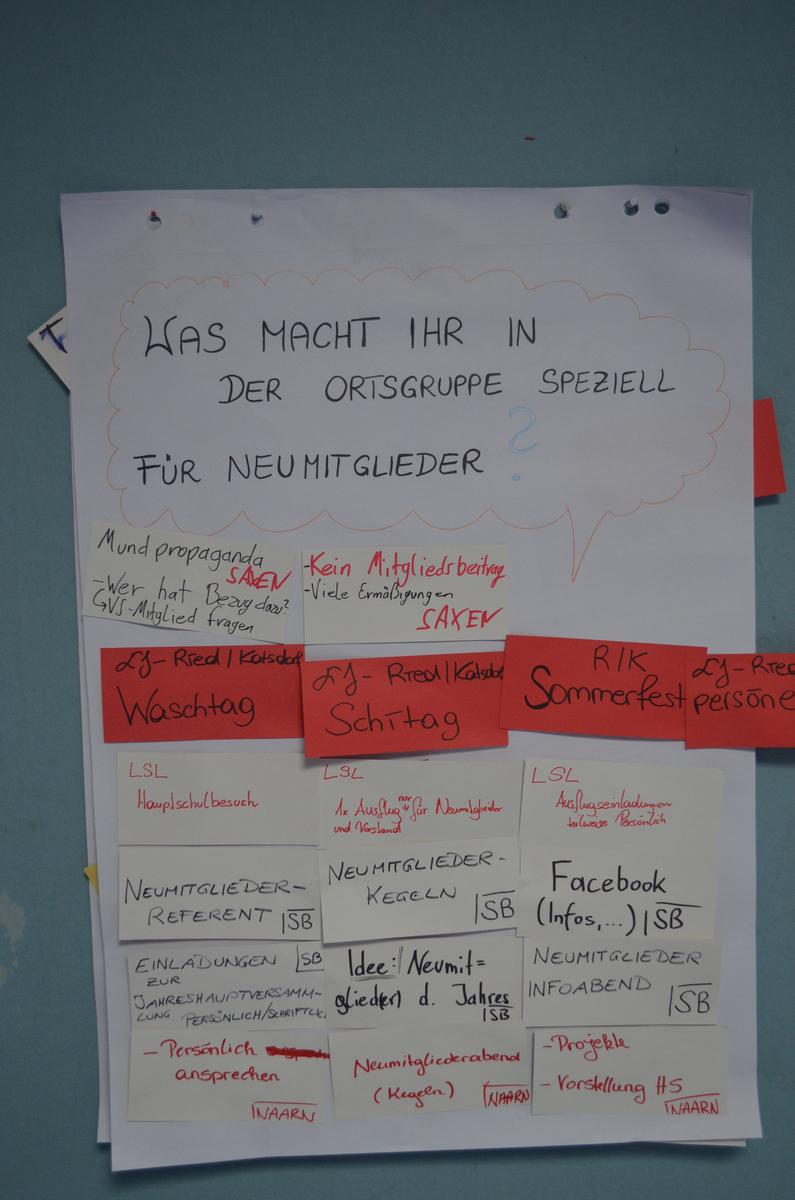 WAS MACHT IHR IN
DER ORTSGRUPPE SPEZIELL
FÜR NEUMITGLIEDER ?
Mundpropaganda
SAXEN
-Wer hat Bezug dazu?
↳VS-Mitglied fragen
-Kein Mitgliedsbeitrag
-Viele Ermäßigungen
SAXEN
LJ-Ried/Katsdorf
Waschtag
LJ-Ried/Katsdor
Schitag
R/K
Sommerfest
LJ-Ried
persöne
LSL
Hauptschulbesuch
LSL
1x Ausflug nur für Neumitglieder
und Vorstand
LSL
Ausflugseinladungen
teilweise Persönlich
NEUMITGLIEDER-
REFERENT SB
NEUMITGLIEDER-
KEGELN SB
Facebook
(Infos,...) SB
EINLADUNGEN SB
ZUR
JAHRESHAUPTVERSAMM-
LUNG PERSÖNLICH/SCHRIFTLIC
Idee: Neumit=
glied(er) d. Jahres
SB
NEUMITGLIEDER
INFOABEND SB
- Persönlich
ansprechen
NAARN
Neumitgliederabend
(Kegeln) NAARN
-Projekte
- Vorstellung HS
NAARN